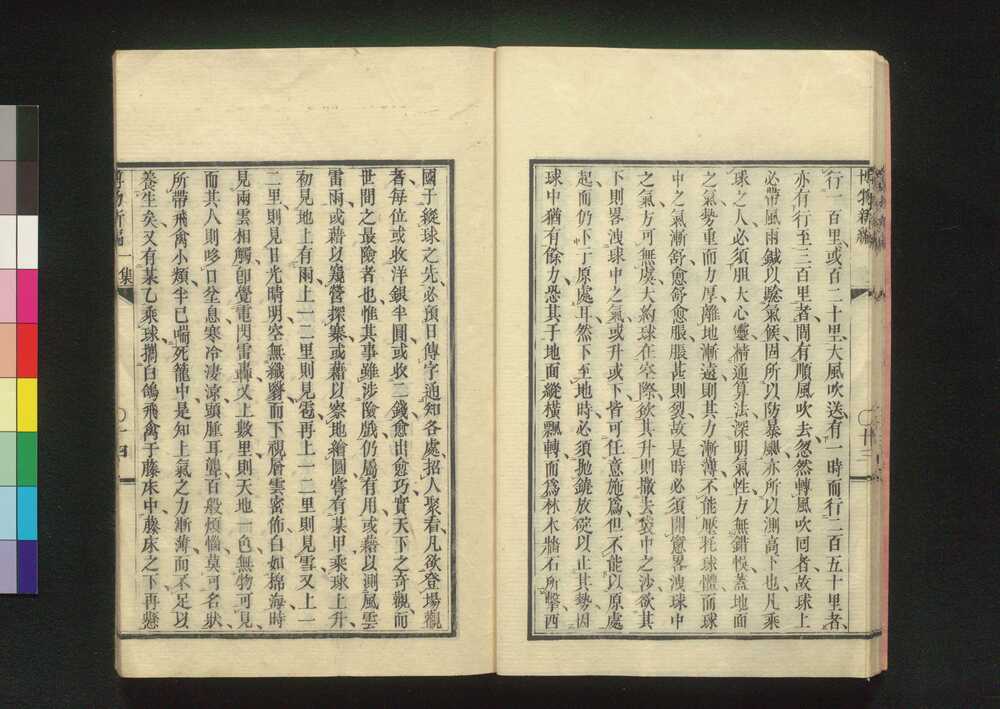 博物新編
行一百里或百二十里大風吹送有一時而行二百五十里者
亦有行至三百里者間有順風吹去忽然轉風吹囘者故球上
必帶風雨鍼以騐氣候固所以防暴風亦所以測高下也凡乘
球之人必須胆大心靈精通算法深明氣性方無錯悞蓋地面
之氣勢重而力厚離地漸遠則其力漸薄不能壓托球體而球
中之氣漸舒愈舒愈脹脹甚則裂故是時必須開窻畧洩球中
之氣方可無虞大約球在空際欲其升則撒去袋中之沙欲其
下則畧洩球中之氣或升或下皆可任意施爲但不能以原處
起而仍下于原處耳然下至地時必須抛鐃放碇以止其勢因
球中猶有餘力恐其于地面縱橫飄轉而爲林木牆石所擊西
國于縱球之先必預日傳字通知各處招人聚看凡欲登場觀
者每位或收洋銀半圓或收二錢愈出愈巧實天下之奇觀而
世間之最險者也惟其事雖涉險戲仍屬有用或藉以測風雲
雷雨或藉以窺營探寨或藉以察地繪圖嘗有某甲乘球上升
初見地上有雨上一二里則見雹再上一二里則見雪又上一
二里則見日光晴明空無纖翳而下視層雲密佈白如綿海時
見兩雲相觸卽覺電閃雷轟又上數里則天地一色無物可見
而其人則哆口坌息寒冷凄涼頭腫耳聾百般煩惱莫可名狀
所帶飛禽小類半已喘死籠中是知上氣之力漸薄而不足以
養生矣又有某乙乘球攜白鴿飛禽于藤床中藤床之下再懸
博物新編一集